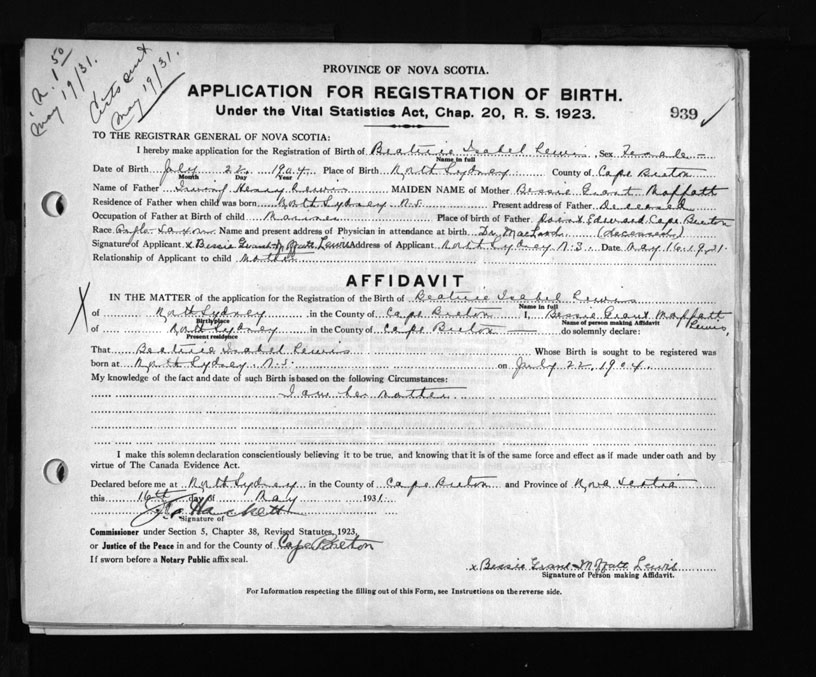 R. 1.50
May 19/31.
Cert sent
May 19/31.
PROVINCE OF NOVA SCOTIA.
APPLICATION FOR REGISTRATION OF BIRTH.
Under the Vital Statistics Act, Chap. 20, R. S. 1923.
939
TO THE REGISTRAR GENERAL OF NOVA SCOTIA:
I hereby make application for the Registration of Birth of Beatrice Isabel Lewis Sex Female
Name in full
Date of Birth July 22, 1904 Place of Birth North Sydney County of Cape Breton
Month Day Year
Name of Father Henry Lewis MAIDEN NAME of Mother Bessie Grant Moffatt
Residence of Father when child was born North Sydney N.S. Present address of Father Deceased
Occupation of Father at Birth of child Mariner Place of birth of Father Point Edward Cape Breton
Race Anglo-Saxon Name and present address of Physician in attendance at birth Dr. MacLeod (deceased)
Signature of Applicant x Bessie Grant Moffatt Lewis Address of Applicant North Sydney N.S. Date May 16, 1931
Relationship of Applicant to child Mother
AFFIDAVIT
X
IN THE MATTER of the application for the Registration of the Birth of Beatrice Isabel Lewis
Name in full
of North Sydney in the County of Cape Breton I, Bessie Grant Moffatt Lewis,
Birthplace Name of person making Affidavit
of North Sydney in the County of Cape Breton do solemnly declare:
Present residence
That Beatrice Isabel Lewis Whose Birth is sought to be registered was
born at North Sydney, N.S. on July 22, 1904.
My knowledge of the fact and date of such Birth is based on the following Circumstances:
I am her mother
I make this solemn declaration conscientiously believing it to be true, and knowing that it is of the same force and effect as if made under oath and by
virtue of The Canada Evidence Act.
Declared before me at North Sydney in the County of Cape Breton and Province of Nova Scotia
this 16th day of May 1931
Hackett
Signature of
Commissioner under Section 5, Chapter 38, Revised Statutes, 1923,
or Justice of the Peace in and for the County of Cape Breton
If sworn before a Notary Public affix seal.
x Bessie Grant Moffatt Lewis
Signature of Person making Affidavit.
For Information respecting the filling out of this Form, see Instructions on the reverse side.